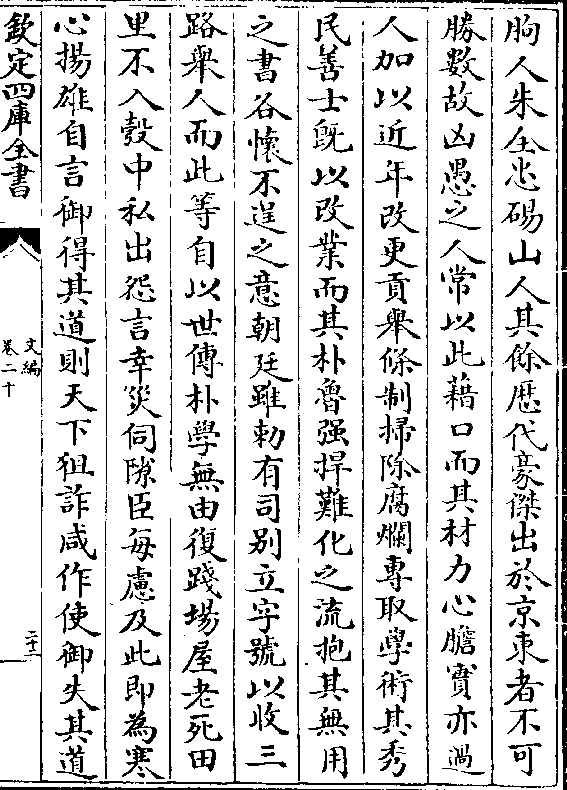 朐人朱全忠碭山人其餘歴代豪傑出於京東者不可
勝數故凶愚之人常以此藉口而其材力心膽實亦過
人加以近年改更貢舉條制掃除腐爛專取學術其秀
民善士既以改業而其朴魯强捍難化之流抱其無用
之書各懷不逞之意朝廷雖勅有司别立字號以收三
路舉人而此等自以世傳朴學無由復踐塲屋老死田
里不入彀中私出怨言幸災伺隙臣每慮及此即為寒
心揚雄自言御得其道則天下狙詐咸作使御失其道
欽定四庫全書
文編
卷二十
二十二